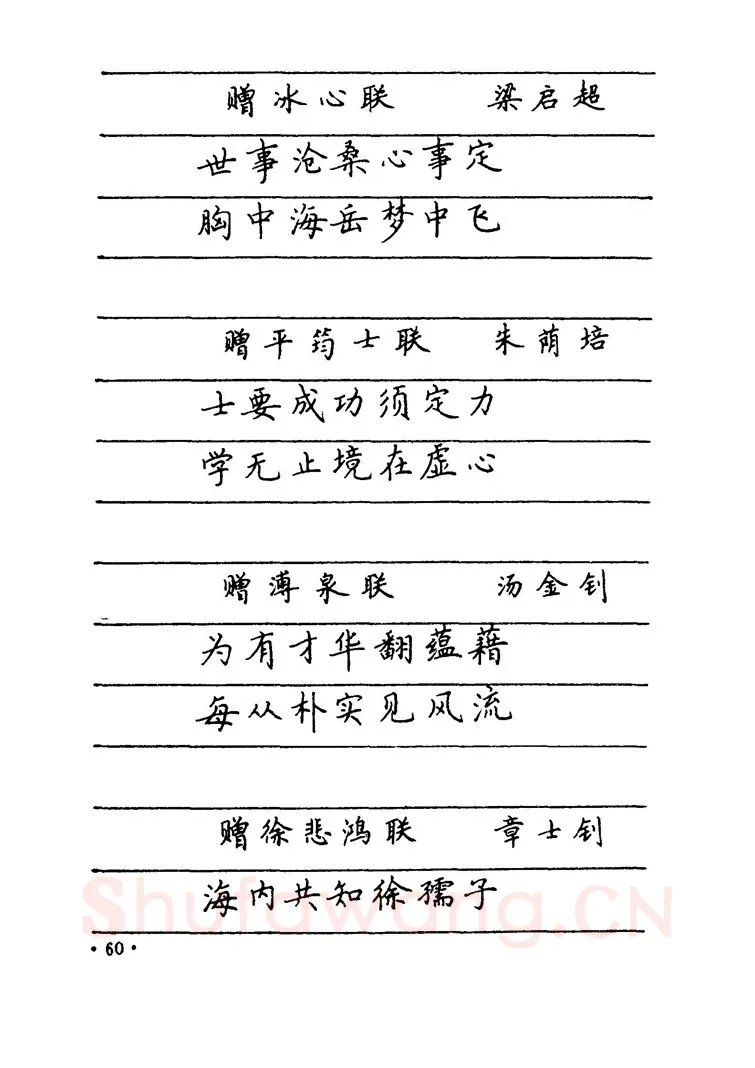 赠冰心联 梁启超
世事沧桑心事定
胸中海岳梦中飞
赠平筠士联 朱荫培
士要成功须定力
学无止境在虚心
赠溥泉联 汤金钊
为有才华翻蕴藉
每从朴实见风流
赠徐悲鸿联 章士钊
海内共知徐孺子
Shufawang.CN
·60·